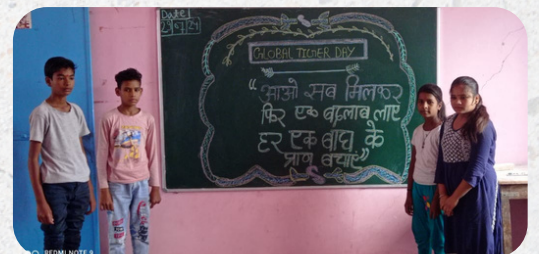 Date
29/7/24
GLOBAL TIGER DAY
"आओ सब मिलकर
फिर एक बदलाव लाएं
हर एक बाघ के
प्राण बचाएं"
REDMI NOTE 9